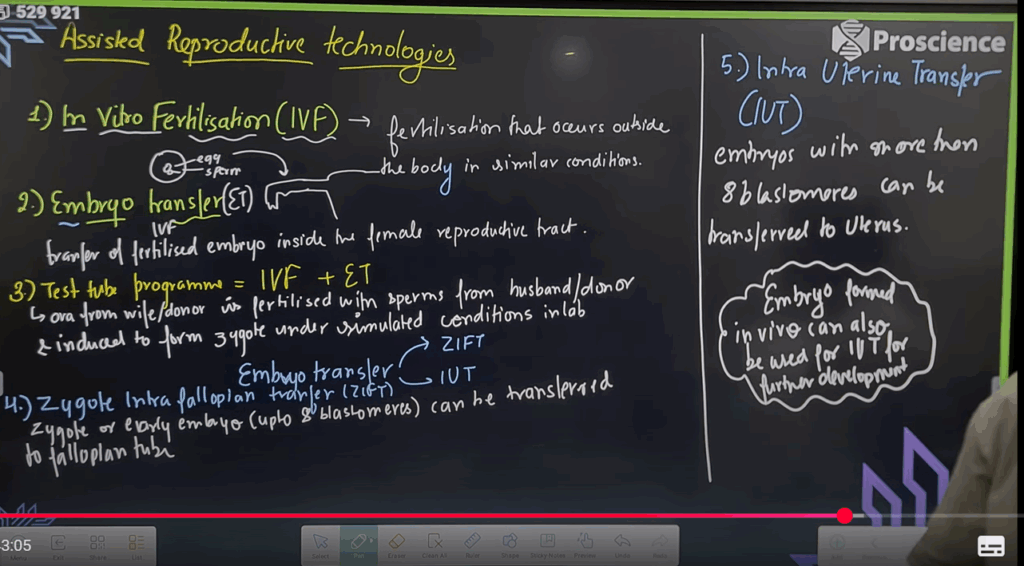 529 921
Assisted Reproductive technologies
Proscience
1) In Vitro Fertilisation (IVF) → fertilisation that occurs outside
the body in similar conditions.
egg
sperm
2.) Embryo transfer (ET)
IVF
tranfer of fertilised embryo inside the female reproductive tract.
3.) Test tube programme = IVF + ET
↳ ova from wife/donor is fertilised with sperms from husband/donor
& induced to form zygote under simulated conditions in lab
Embryo transfer
→ ZIFT
→ IUT
4.) Zygote Intra fallopian tranfer (ZIFT)
Zygote or early embryo (upto 8 blastomeres) can be transferred
to fallopian tube
5.) Intra Uterine Transfer
(IUT)
embryos with more than
8 blastomeres can be
transferred to Uterus.
Embryo formed
in vivo can also
be used for IUT for
further development
3:05
Menu
Exit
Share
List
Select
Pen
Eraser
Clear All
Ruler
Shape
Sticky Notes
Preview
Undo
Redo